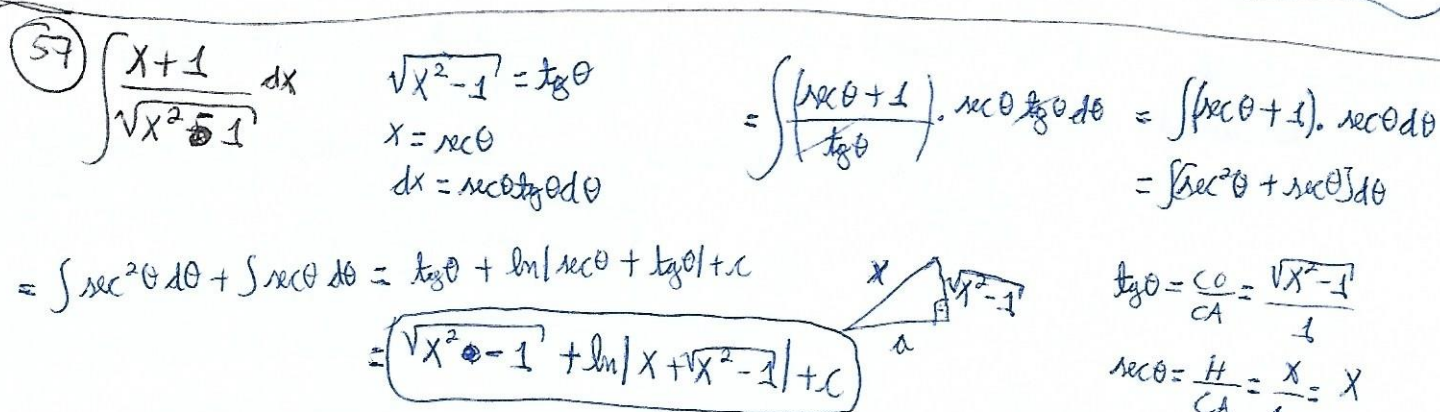 57 ∫ (x+1)/√(x² - 1) dx
√(x²-1) = tgθ
x = secθ
dx = secθtgθdθ
= ∫ ((secθ + 1)/tgθ) · secθ tgθ dθ = ∫(secθ + 1). secθdθ
= ∫[sec²θ + secθ]dθ
= ∫ sec²θ dθ + ∫ secθ dθ = tgθ + ln|secθ + tgθ| + c
= √(x² - 1) + ln|x + √(x² - 1)| + c
x √(x²-1)
tgθ = CO/CA = √(x²-1)/1
secθ = H/CA = x/1 = x